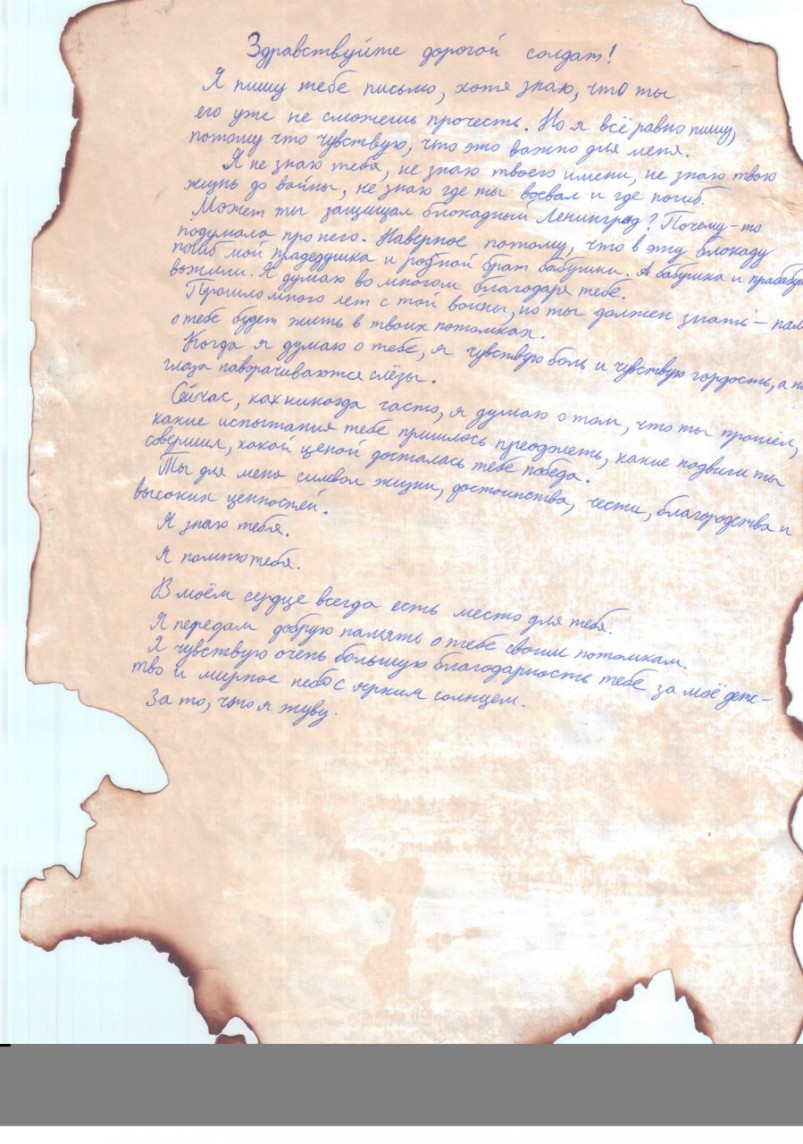 Здравствуйте дорогой солдат!
Я пишу тебе письмо, хотя знаю, что ты
его уже не сможешь прочесть. Но я всё равно пишу,
потому что чувствую, что это важно для меня.
Я не знаю тебя, не знаю твоего имени, не знаю твою
жизнь до войны, не знаю где ты воевал и где погиб.
Может ты защищал блокадный Ленинград? Почему-то
подумала про него. Наверное потому, что в эту блокаду
погиб мой прадедушка и родной брат бабушки. А бабушка и прабабу
выжили. Я думаю во многом благодаря тебе.
Прошло много лет с той войны, но ты должен знать – пам
о тебе будет жить в твоих потомках.
Когда я думаю о тебе, я чувствую боль и чувствую гордость, а на
глаза наворачиваются слёзы.
Сейчас, как никогда часто, я думаю о том, что ты прошёл,
какие испытания тебе пришлось преодолеть, какие подвиги ты
совершил, какой ценой досталась тебе победа.
Ты для меня символ жизни, достоинства, чести, благородства и
высоких ценностей.
Я знаю тебя.
Я помню тебя.
В моём сердце всегда есть место для тебя.
Я передам добрую память о тебе своим потомкам.
Я чувствую очень большую благодарность тебе за моё детс-
тво и мирное небо с ярким солнцем.
За то, что я живу.